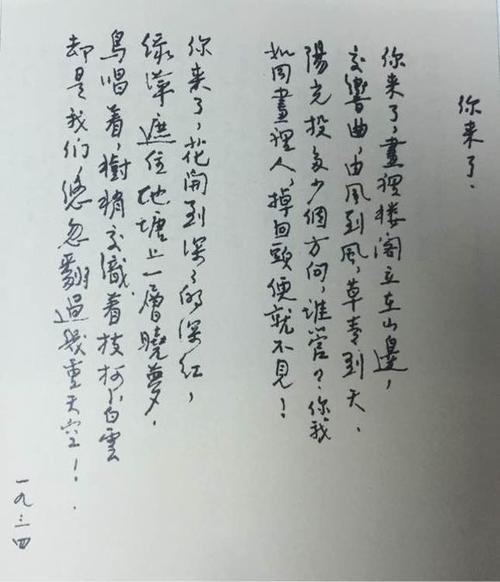 你来了．
你来了，畫裡楼閣立在山邊，
交響曲，由風到風，草青到天．
陽光投多少個方向，誰管？你我
如同畫裡人，掉回頭便就不見！
你来了，花開到深〻的深紅，
绿萍遮住池塘上一層曉夢．
鳥唱着，樹梢交織着枝柯，白雲
却是我们悠忽翻過幾重天空！
一九三四